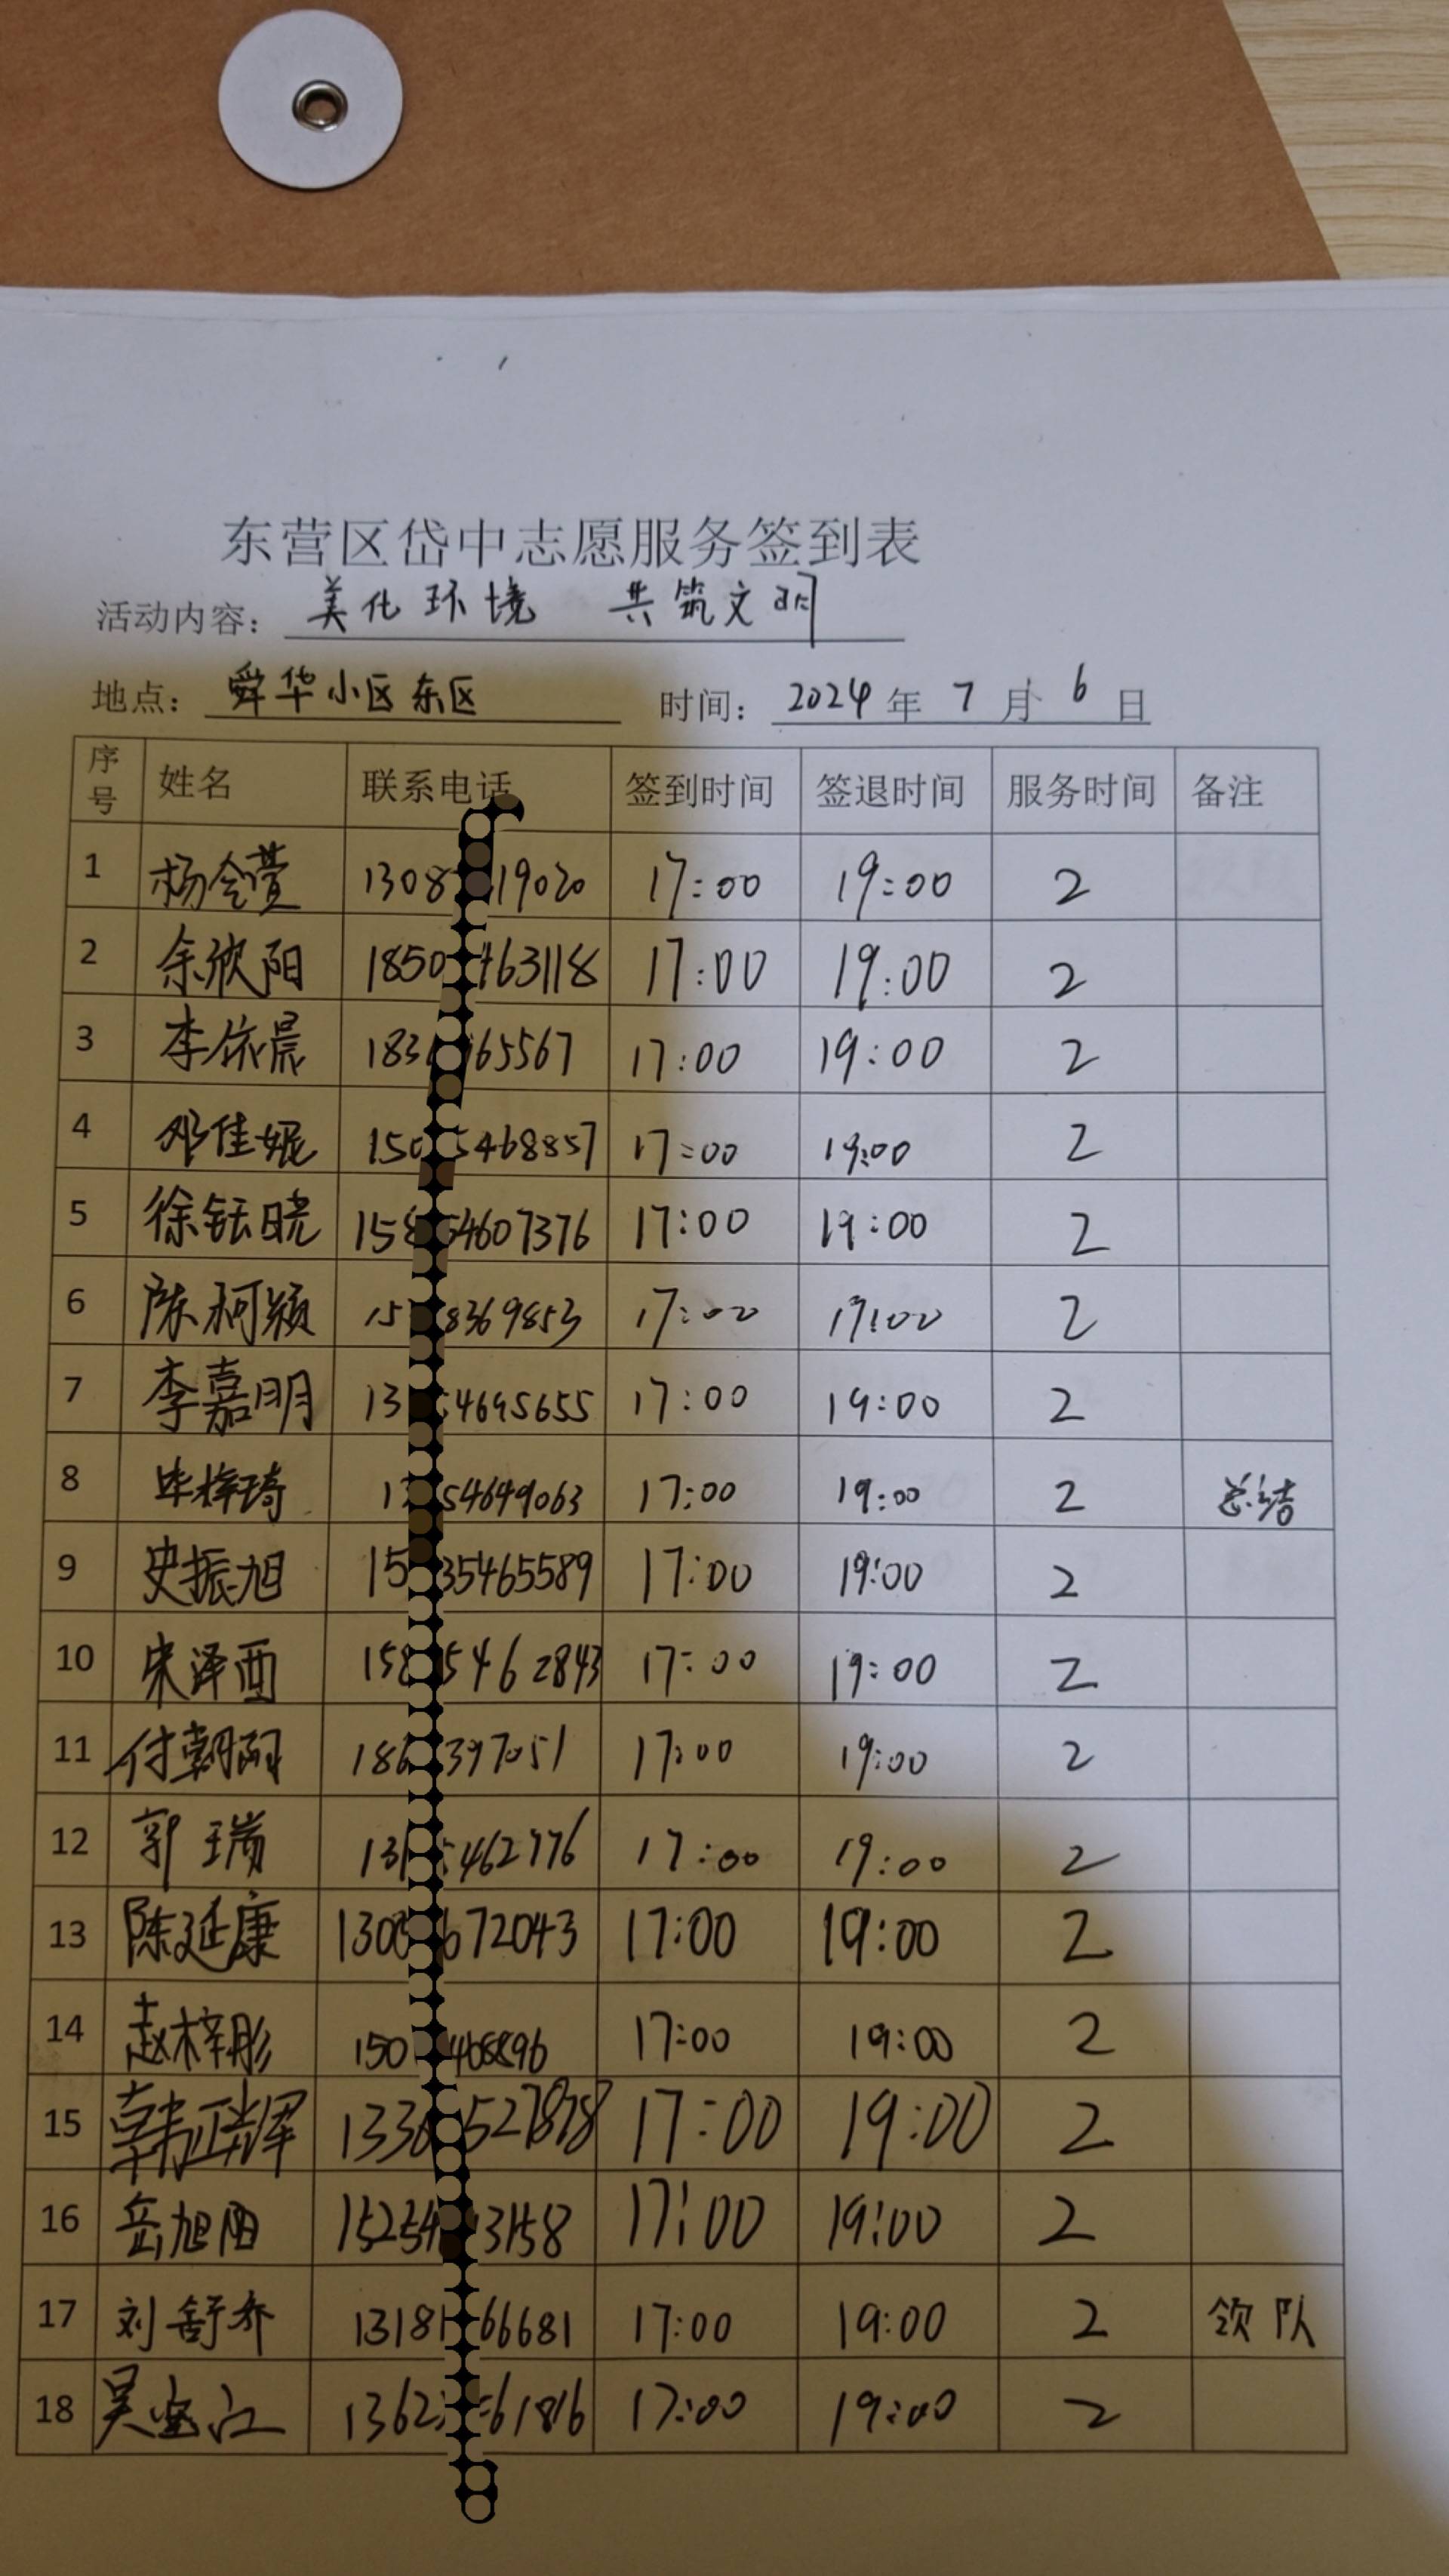 东营区岱中志愿服务签到表
活动内容： 美化环境 共筑文明
地点： 舜华小区东区 时间： 2024年7月6日
序号 姓名 联系电话 签到时间 签退时间 服务时间 备注
1 杨会萱 1308 19020 17:00 19:00 2
2 余欣阳 1850 463118 17:00 19:00 2
3 李依晨 183 65567 17:00 19:00 2
4 邓佳妮 150 5468857 17:00 19:00 2
5 徐钰晓 158 54607376 17:00 19:00 2
6 陈柯颖 15 8369853 17:00 17:00 2
7 李嘉明 13 54695655 17:00 19:00 2
8 毕梓琦 1 54649063 17:00 19:00 2 总结
9 史振旭 15 35465589 17:00 19:00 2
10 宋泽西 158 5462843 17:00 19:00 2
11 付朝阳 186 397051 17:00 19:00 2
12 郭瑞 131 5462776 17:00 19:00 2
13 陈延康 1305 672043 17:00 19:00 2
14 赵梓彤 150 468896 17:00 19:00 2
15 韩正辉 133 527878 17:00 19:00 2
16 岳旭阳 15254 3158 17:00 19:00 2
17 刘舒乔 1318 66681 17:00 19:00 2 领队
18 吴 江 1362 61816 17:00 19:00 2